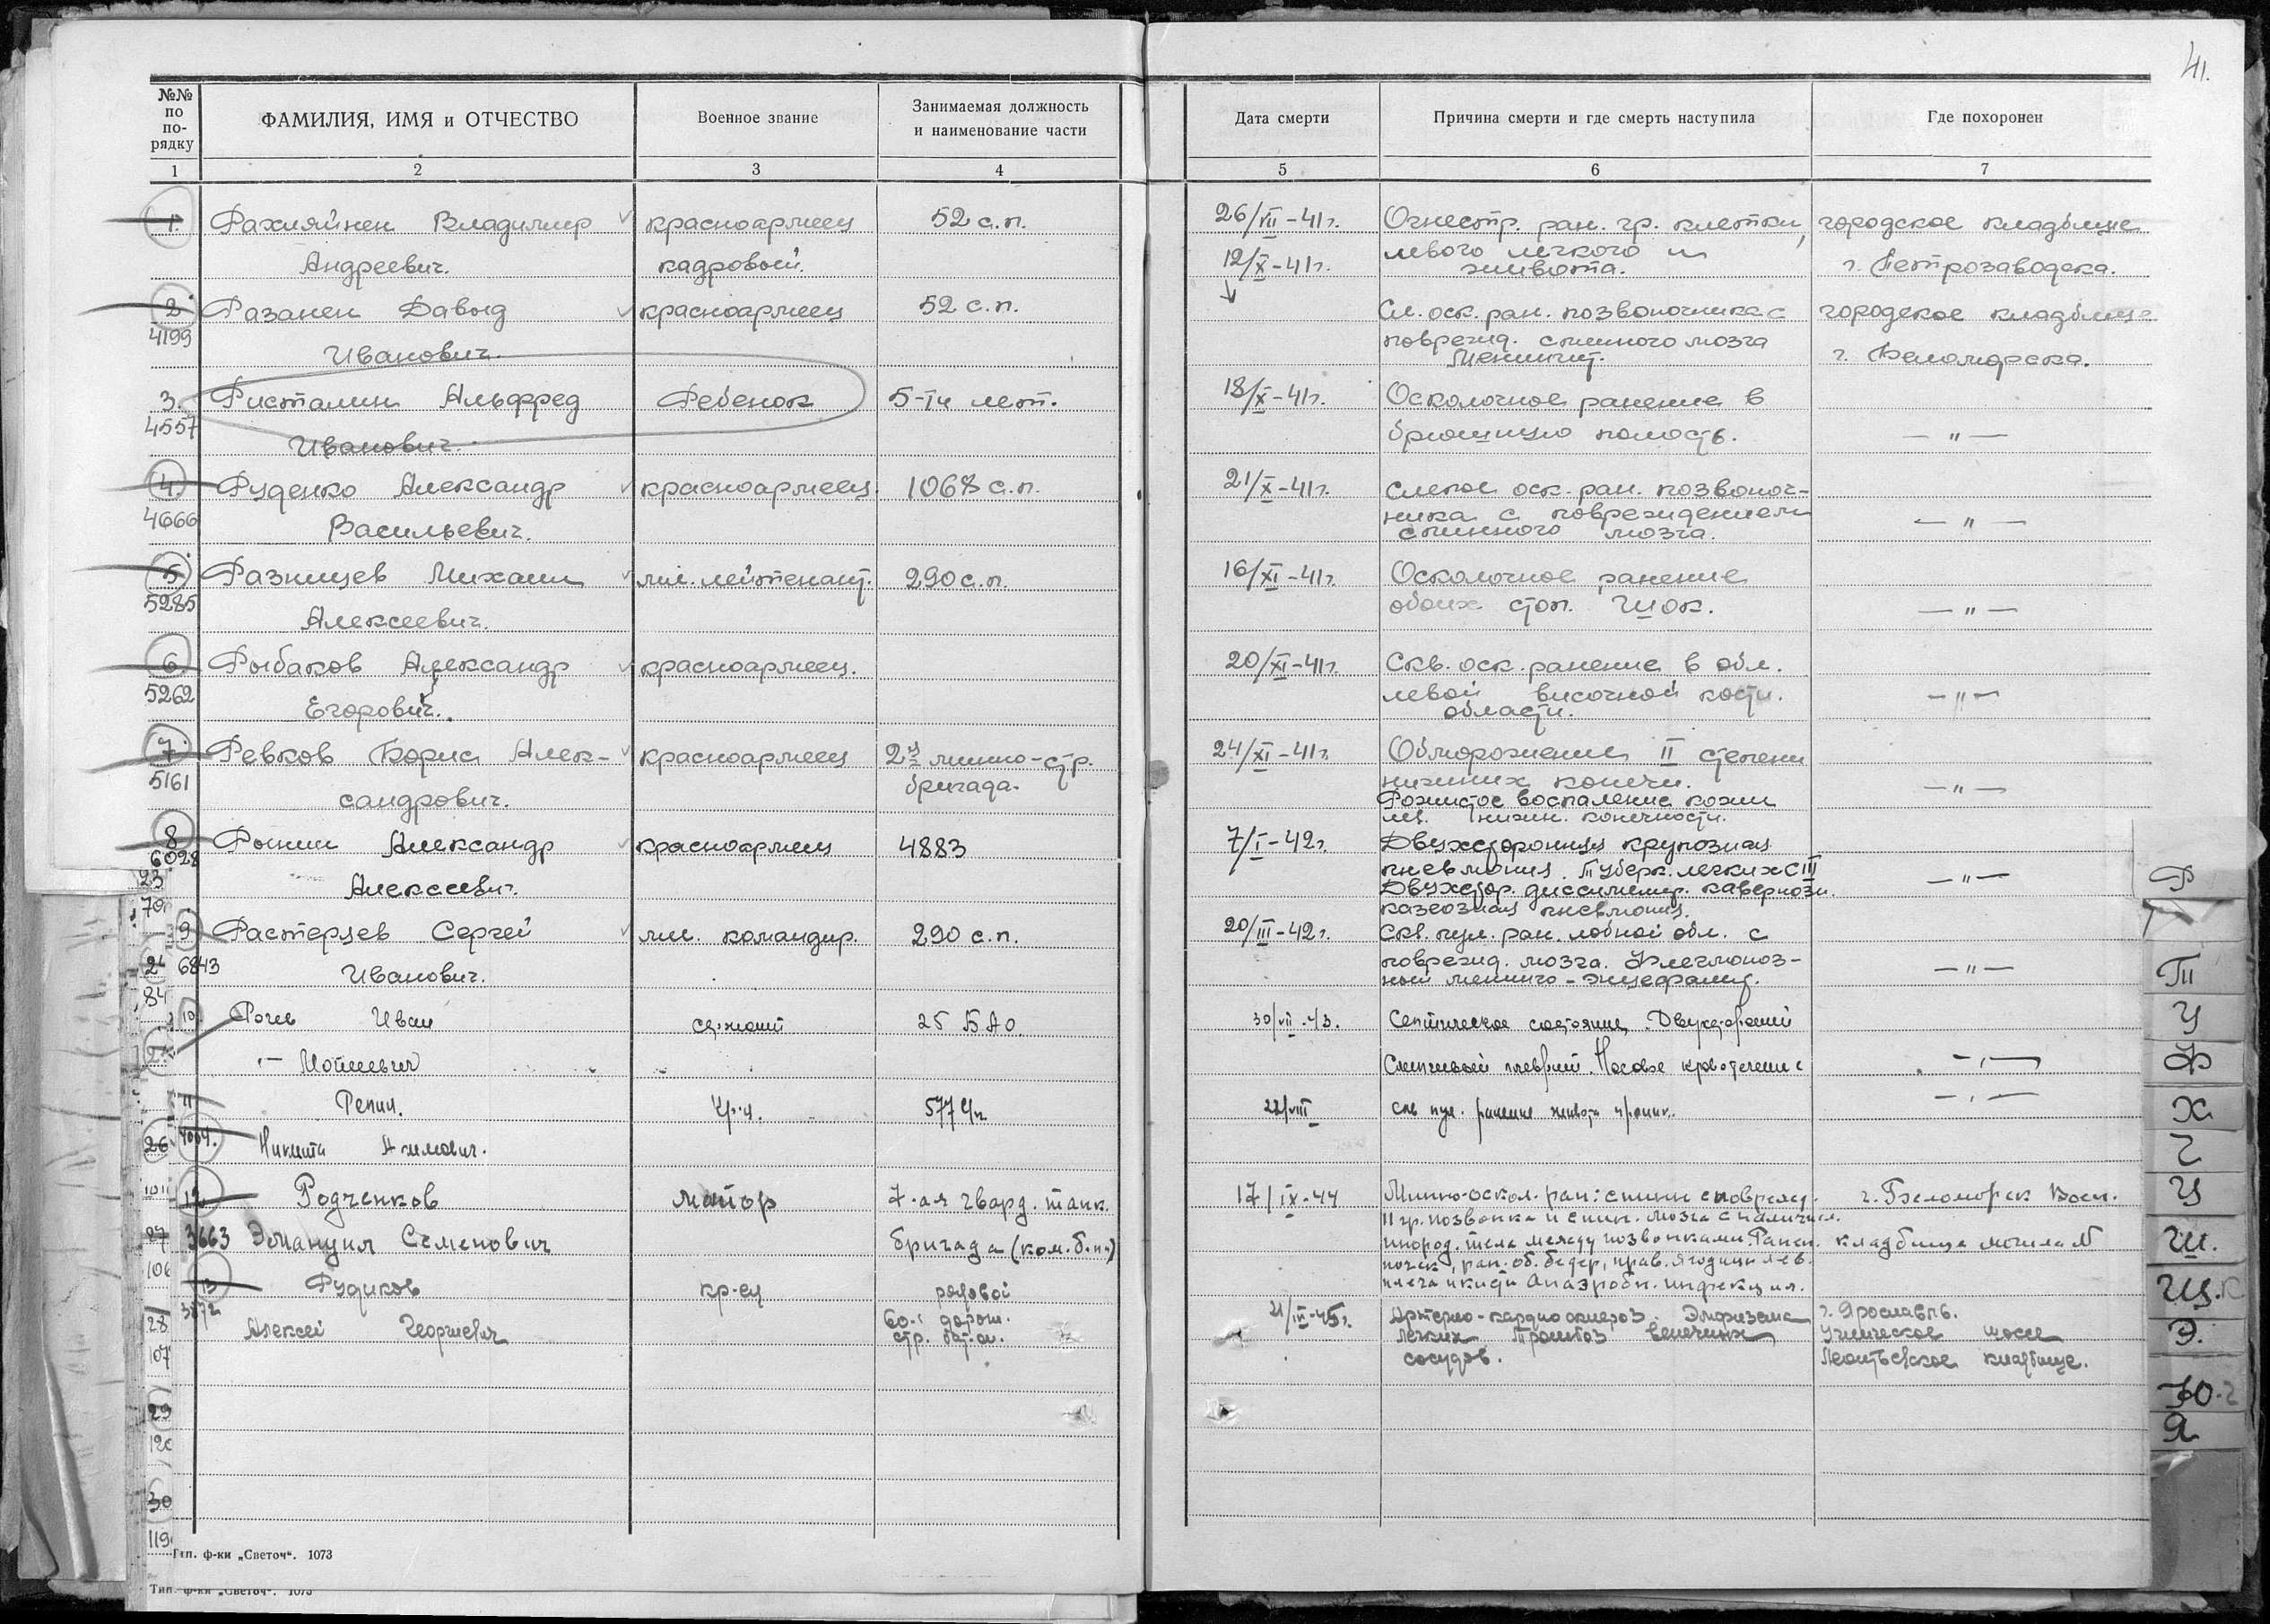 41.
№№ по по-рядку
ФАМИЛИЯ, ИМЯ и ОТЧЕСТВО
Военное звание
Занимаемая должность и наименование части
Дата смерти
Причина смерти и где смерть наступила
Где похоронен
1 2 3 4 5 6 7
1. Рахияйнен Владимир красноармеец 52 с.п. 26/VII-41г. Огнестр. ран. гр. клетки, городское кладбище
Андреевич. кадровый. 12/X-41г. левого легкого и
живота. г. Петрозаводска.
2 Разанен Давыд красноармеец 52 с.п. Сл. оск. ран. позвоночника с городское кладбище
4199 поврежд. спинного мозга
Иванович. Менингит. г. Беломорска.
3. Ристалин Альфред Ребенок 5-ти лет. 18/X-41г. Осколочное ранение в
4557 Иванович. брюшную полость. — " —
4. Руденко Александр красноармеец. 1068 с.п. 21/X-41г. Слепое оск. ран. позвоноч-
4666 ника с повреждением — " —
Васильевич. спинного мозга.
5. Разницев Михаил мл. лейтенант. 290 с.п. 16/XI-41г. Осколочное ранение
5285 Алексеевич. обоих стоп. Шок. — " —
6. Рыбаков Александр красноармеец. 20/XI-41г. Скв. оск. ранение в обл.
5262 левой височной кости. — " —
Егорович. области.
7. Ревков Борис Алек- красноармеец 2я лыжно-стр. 24/XI-41г. Обморожение II степени
5161 бригада. нижних конечн. — " —
сандрович. Рожистое воспаление кожи
нижн. конечности.
8 Рогин Александр красноармеец 4883 7/I-42г. Двухсторонняя крупозная
6028 пневмония. Туберк. легких С III
Алексеевич. Двухстор. диссемир. кавернозн. — " —
казеозная пневмония.
9. Растерцев Сергей мл. командир. 290 с.п. 20/III-42г. Скв. пул. ран. лобной обл. с
6843 поврежд. мозга. Флегмоноз- — " —
Иванович. ный менинго-энцефалит.
10 Рочев Иван сержант 25 БАО. 30/VII-43. Септическое состояние. Двухсторонний
Слипчивый плеврит. Носовое кровотечение
11 Репин. 22/VIII
7004. Никита
12 Родченков майор 7-ая гвард. танк. 17/IX-44 Минно-оскол. ран: спины с поврежд. г. Беломорск Воен.
II гр. позвонка и спин. мозга с наличием
3663 Эмануил Семенович бригада инород. тела между позвонками. Ранен. кладбище могила №
почек, ран. об. бедер, прав. ягодицы лев.
плеча и кисти Анаэробн. инфекция.
13 Рудиков кр-ец рядовой
3872 60-й дорож. 21/III-45г. Артерио-кардиосклероз. Эмфизема г. Ярославль.
Алексей Георгиевич стр. бат-он. легких Тромбоз венечных Угличское шоссе
сосудов. Леонтьевское кладбище.
Тип. ф-ки „Светоч“. 1073
Тип. ф-ки „Светоч“. 1073
23
26
27
106
28
107
29
30
119
Р
Т
П
У
Ф
Х
Ц
Ш.
Щ.
Э.
Ю.
Я